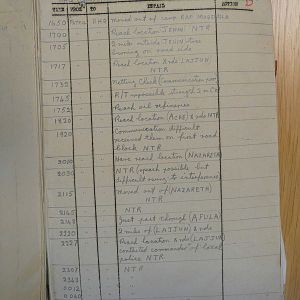 TIME FROM TO DETAIL ACTION
1650 PATROL RHQ Moved out of camp
1700 Reach location JENIN NTR
1705 2 miles outside JENIN tire
burning on road side
1717 Reach location X rds LAJJUN
NTR
1732 Netting Check Communication poor
1745 R/T impossible strength 2 m CW
1752 Reach oil refineries
1820 Reach location (ACRE) X rds NTR
1920 Communication difficult
received them on first road
block NTR
2010 Have reach location (NAZARETH)
2030 NTR (speach possible but
difficult owing to interference)
2115 Moved out of (NAZARETH)
NTR
2145 NTR
2149 Just past through (AFULA)
2220 2 miles of (LAJJUN) X rds
2227 Reach location X rds (LAJJUN)
contacted commander of local
police NTR
2307 NTR
2343
0012
0040